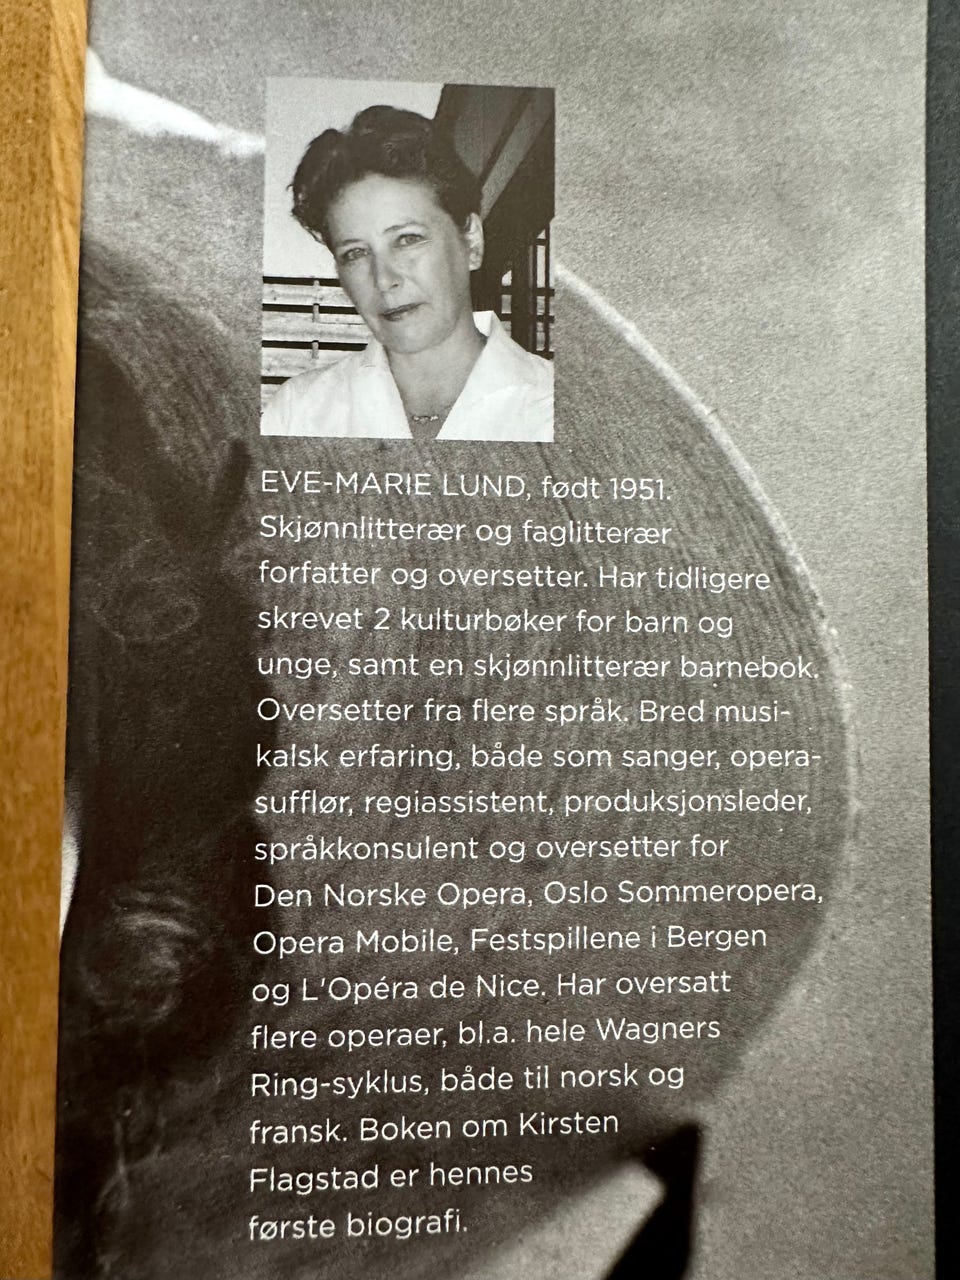 EVE-MARIE LUND, født 1951.
Skjønnlitterær og faglitterær
forfatter og oversetter. Har tidligere
skrevet 2 kulturbøker for barn og
unge, samt en skjønnlitterær barnebok.
Oversetter fra flere språk. Bred musi-
kalsk erfaring, både som sanger, opera-
sufflør, regiassistent, produksjonsleder,
språkkonsulent og oversetter for
Den Norske Opera, Oslo Sommeropera,
Opera Mobile, Festspillene i Bergen
og L'Opéra de Nice. Har oversatt
flere operaer, bl.a. hele Wagners
Ring-syklus, både til norsk og
fransk. Boken om Kirsten
Flagstad er hennes
første biografi.